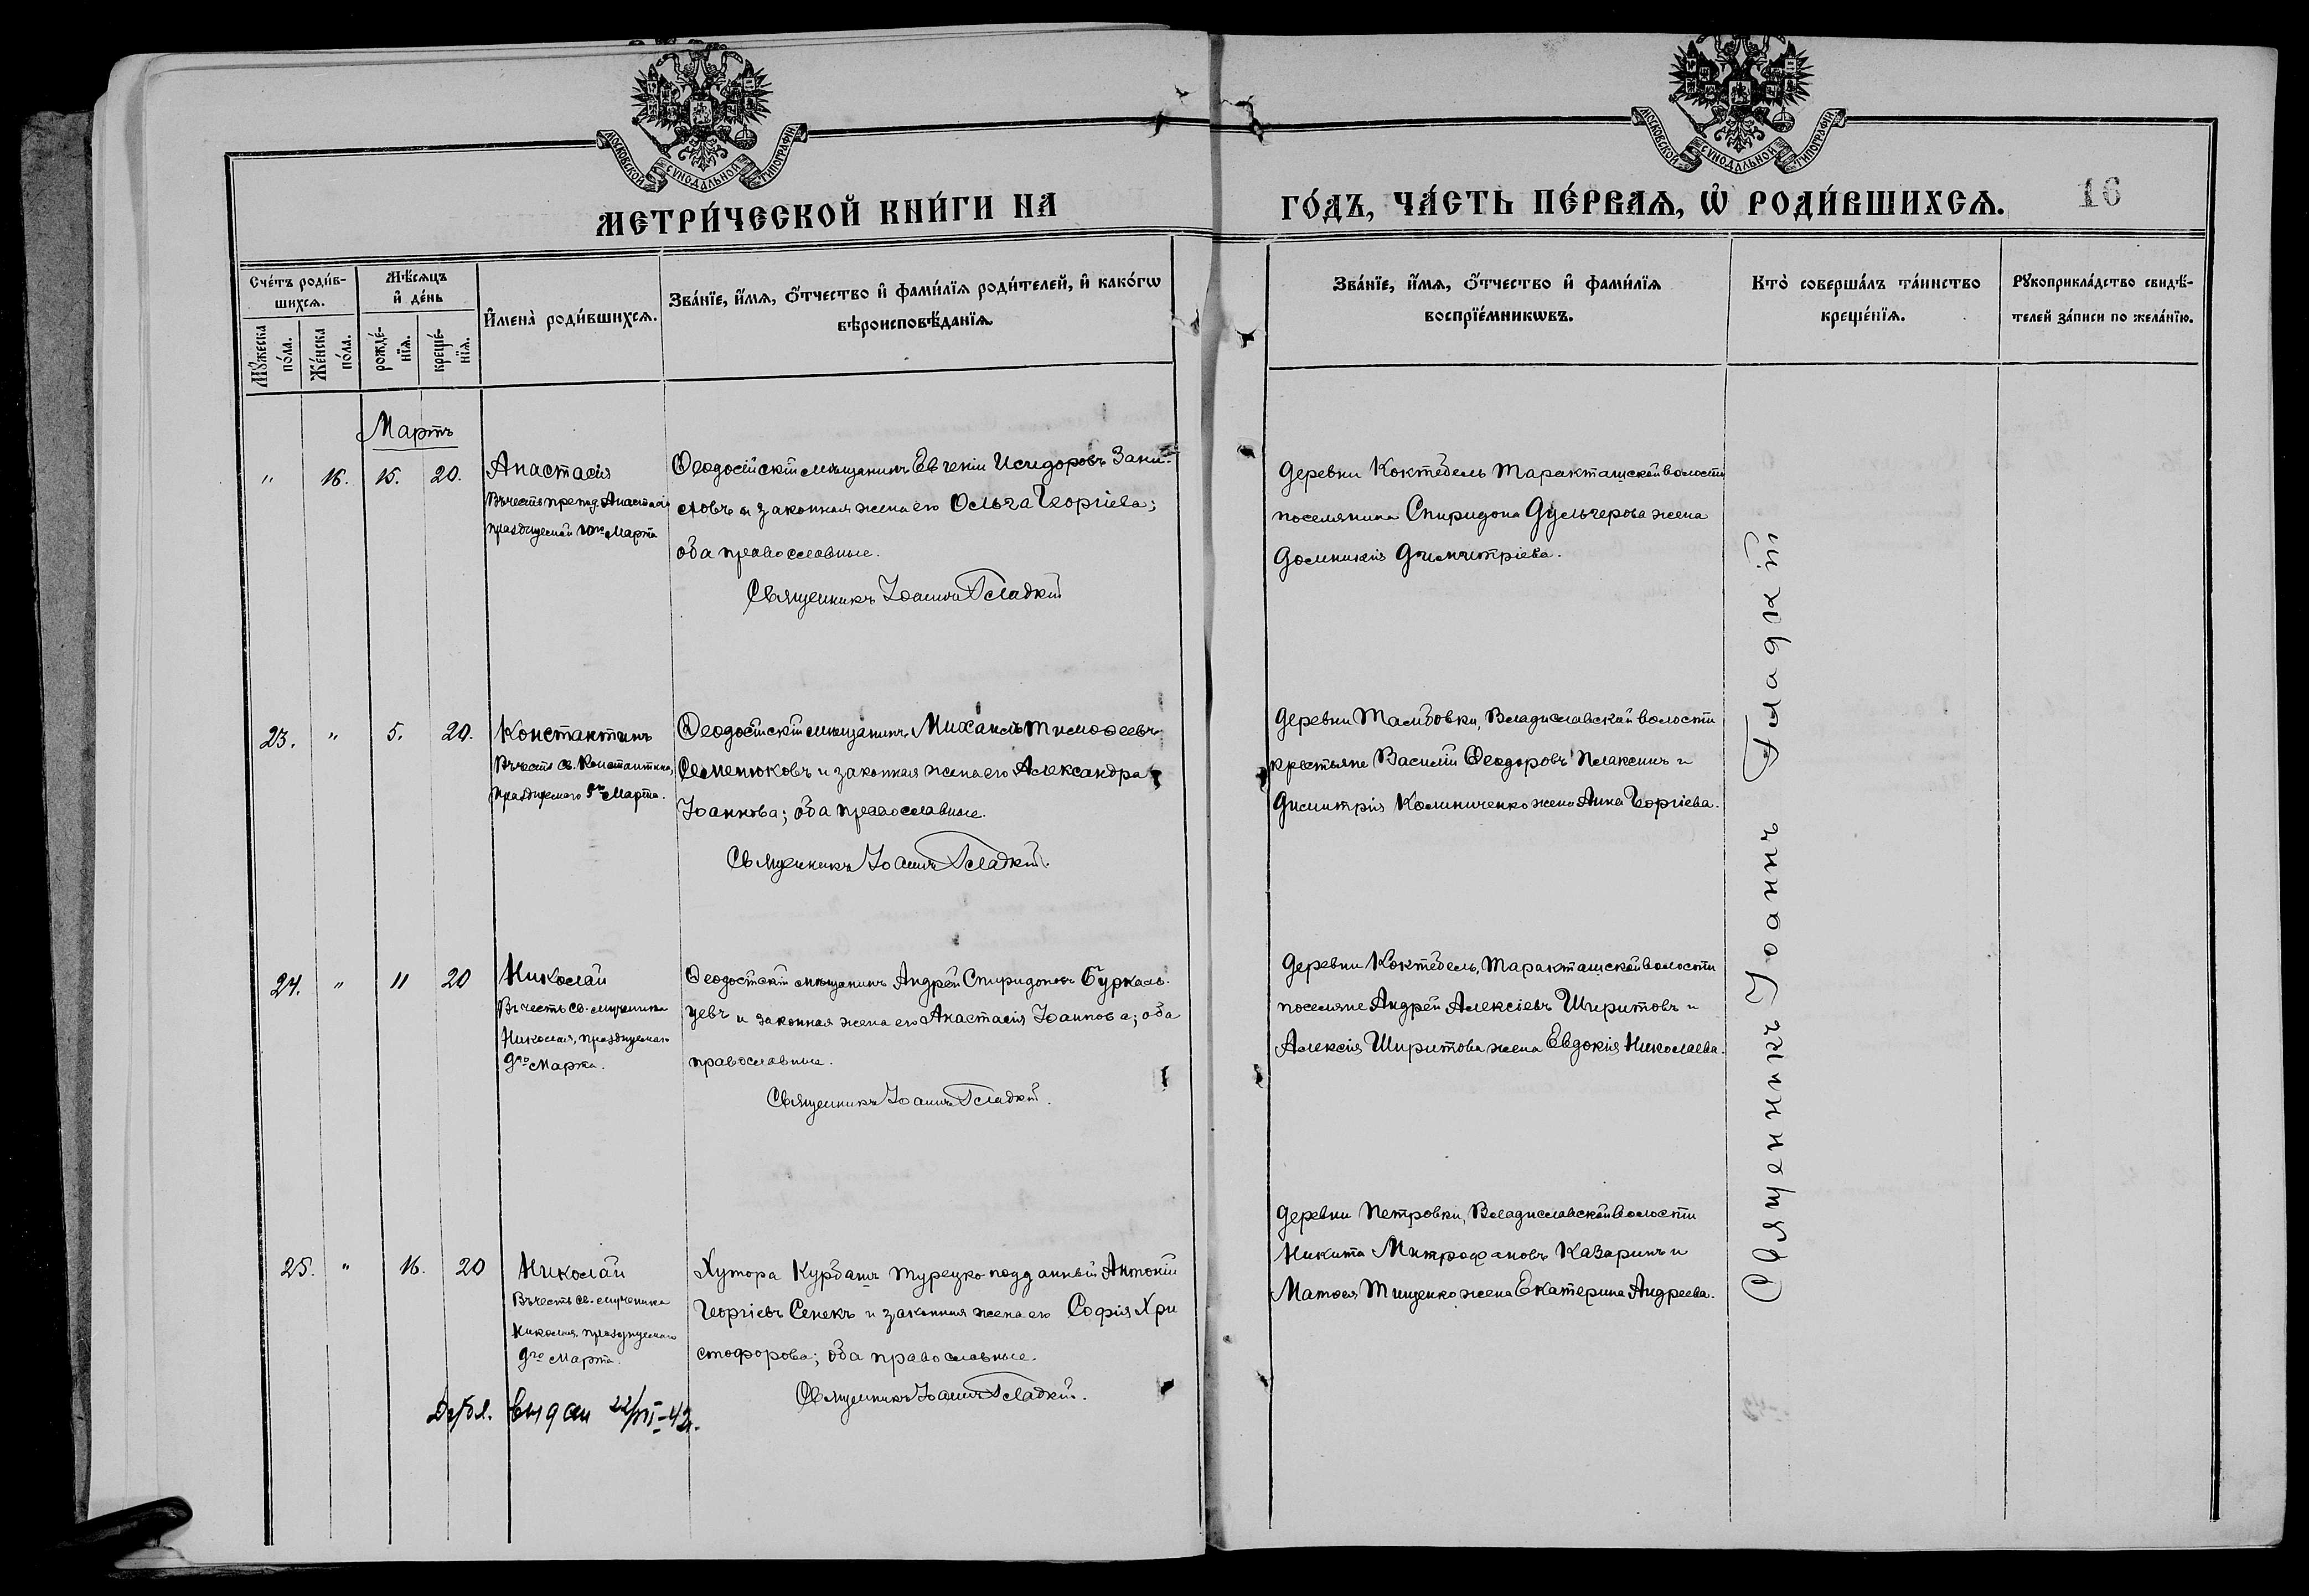 МОСКОВСКОЙ СѴНОДАЛЬНОЙ ТИПОГРАФІИ
МОСКОВСКОЙ СѴНОДАЛЬНОЙ ТИПОГРАФІИ
МЕТРИ́ЧЕСКОЙ КНИ́ГИ НА
ГО́ДЪ, ЧА́СТЬ ПЕ́РВАѦ, Ѡ҆ РОДИ́ВШИХСѦ.
16
Сче́тъ роди́в-
шихсѧ.
Мꙋ́жеска
по́ла.
Же́нска
по́ла.
Мѣ́сѧцъ
и҆ де́нь
рожде́-
нїѧ.
креще́-
нїѧ.
И҆мена̀ роди́вшихсѧ.
Зва́нїе, и҆́мѧ, ѻ҆́тчество и҆ фами́лїѧ роди́телей, и҆ како́гѡ
вѣроисповѣ́данїѧ.
Зва́нїе, и҆́мѧ, ѻ҆́тчество и҆ фами́лїѧ
воспрїе́мникѡвъ.
Кто̀ соверша́лъ та́инство
креще́нїѧ.
Рꙋкоприкла́дство свидѣ́-
телей за́писи по жела́нїю.
Мартъ
" 16. 15. 20.
Анастасія
Въ честь препод. Анастасіи
празднуемой 10го Марта
Ѳеодосійскій мѣщанинъ Евгеній Исидоровъ
и законная жена его Ольга Георгіева;
оба православные.
Священникъ Іоаннъ Гладкій
Деревни Коктебель Таракташской волости
поселянина Спиридона Дульгерова жена
Домникія Димитріева.
23. " 5. 20.
Константинъ
Въ честь св. Константина,
празднуемого 5го Марта.
Ѳеодосійскій мѣщанинъ Михаилъ Тимоѳеевъ
Семенюковъ и законная жена его Александра
Іоаннова; оба православные.
Священникъ Іоаннъ Гладкій.
Деревни Тамбовки, Владиславской волости
крестьяне Василій Ѳеодоровъ Плаксинъ и
Димитрія Калиниченко жена Анна Георгіева.
24. " 11 20
Николай
Въ честь св. мученика
Николая, празднуемаго
9го Марта.
Ѳеодосійскій мѣщанинъ Андрей Спиридоновъ Буркаль-
цевъ и законная жена его Анастасія Іоаннова; оба
православные.
Священникъ Іоаннъ Гладкій.
Деревни Коктебель, Таракташской волости
поселяне Андрей Алексіевъ Ширитовъ и
Алексія Ширитова жена Евдокія Николаева.
25. " 16. 20
Николай
Въ честь св. мученика
Николая, празднуемаго
9го Марта.
Хутора Курбашъ турецко подданный Антоній
Георгіевъ Сенекъ и законная жена его Софія Хри
стофорова; оба православные.
Священникъ Іоаннъ Гладкій.
Деревни Петровки, Владиславской волости
Никита Митрофановъ Казаринъ и
Матѳея Тищенко жена Екатерина Андреева.
Дубл. выдан 22/VII-42.
Священникъ Іоаннъ Гладкій